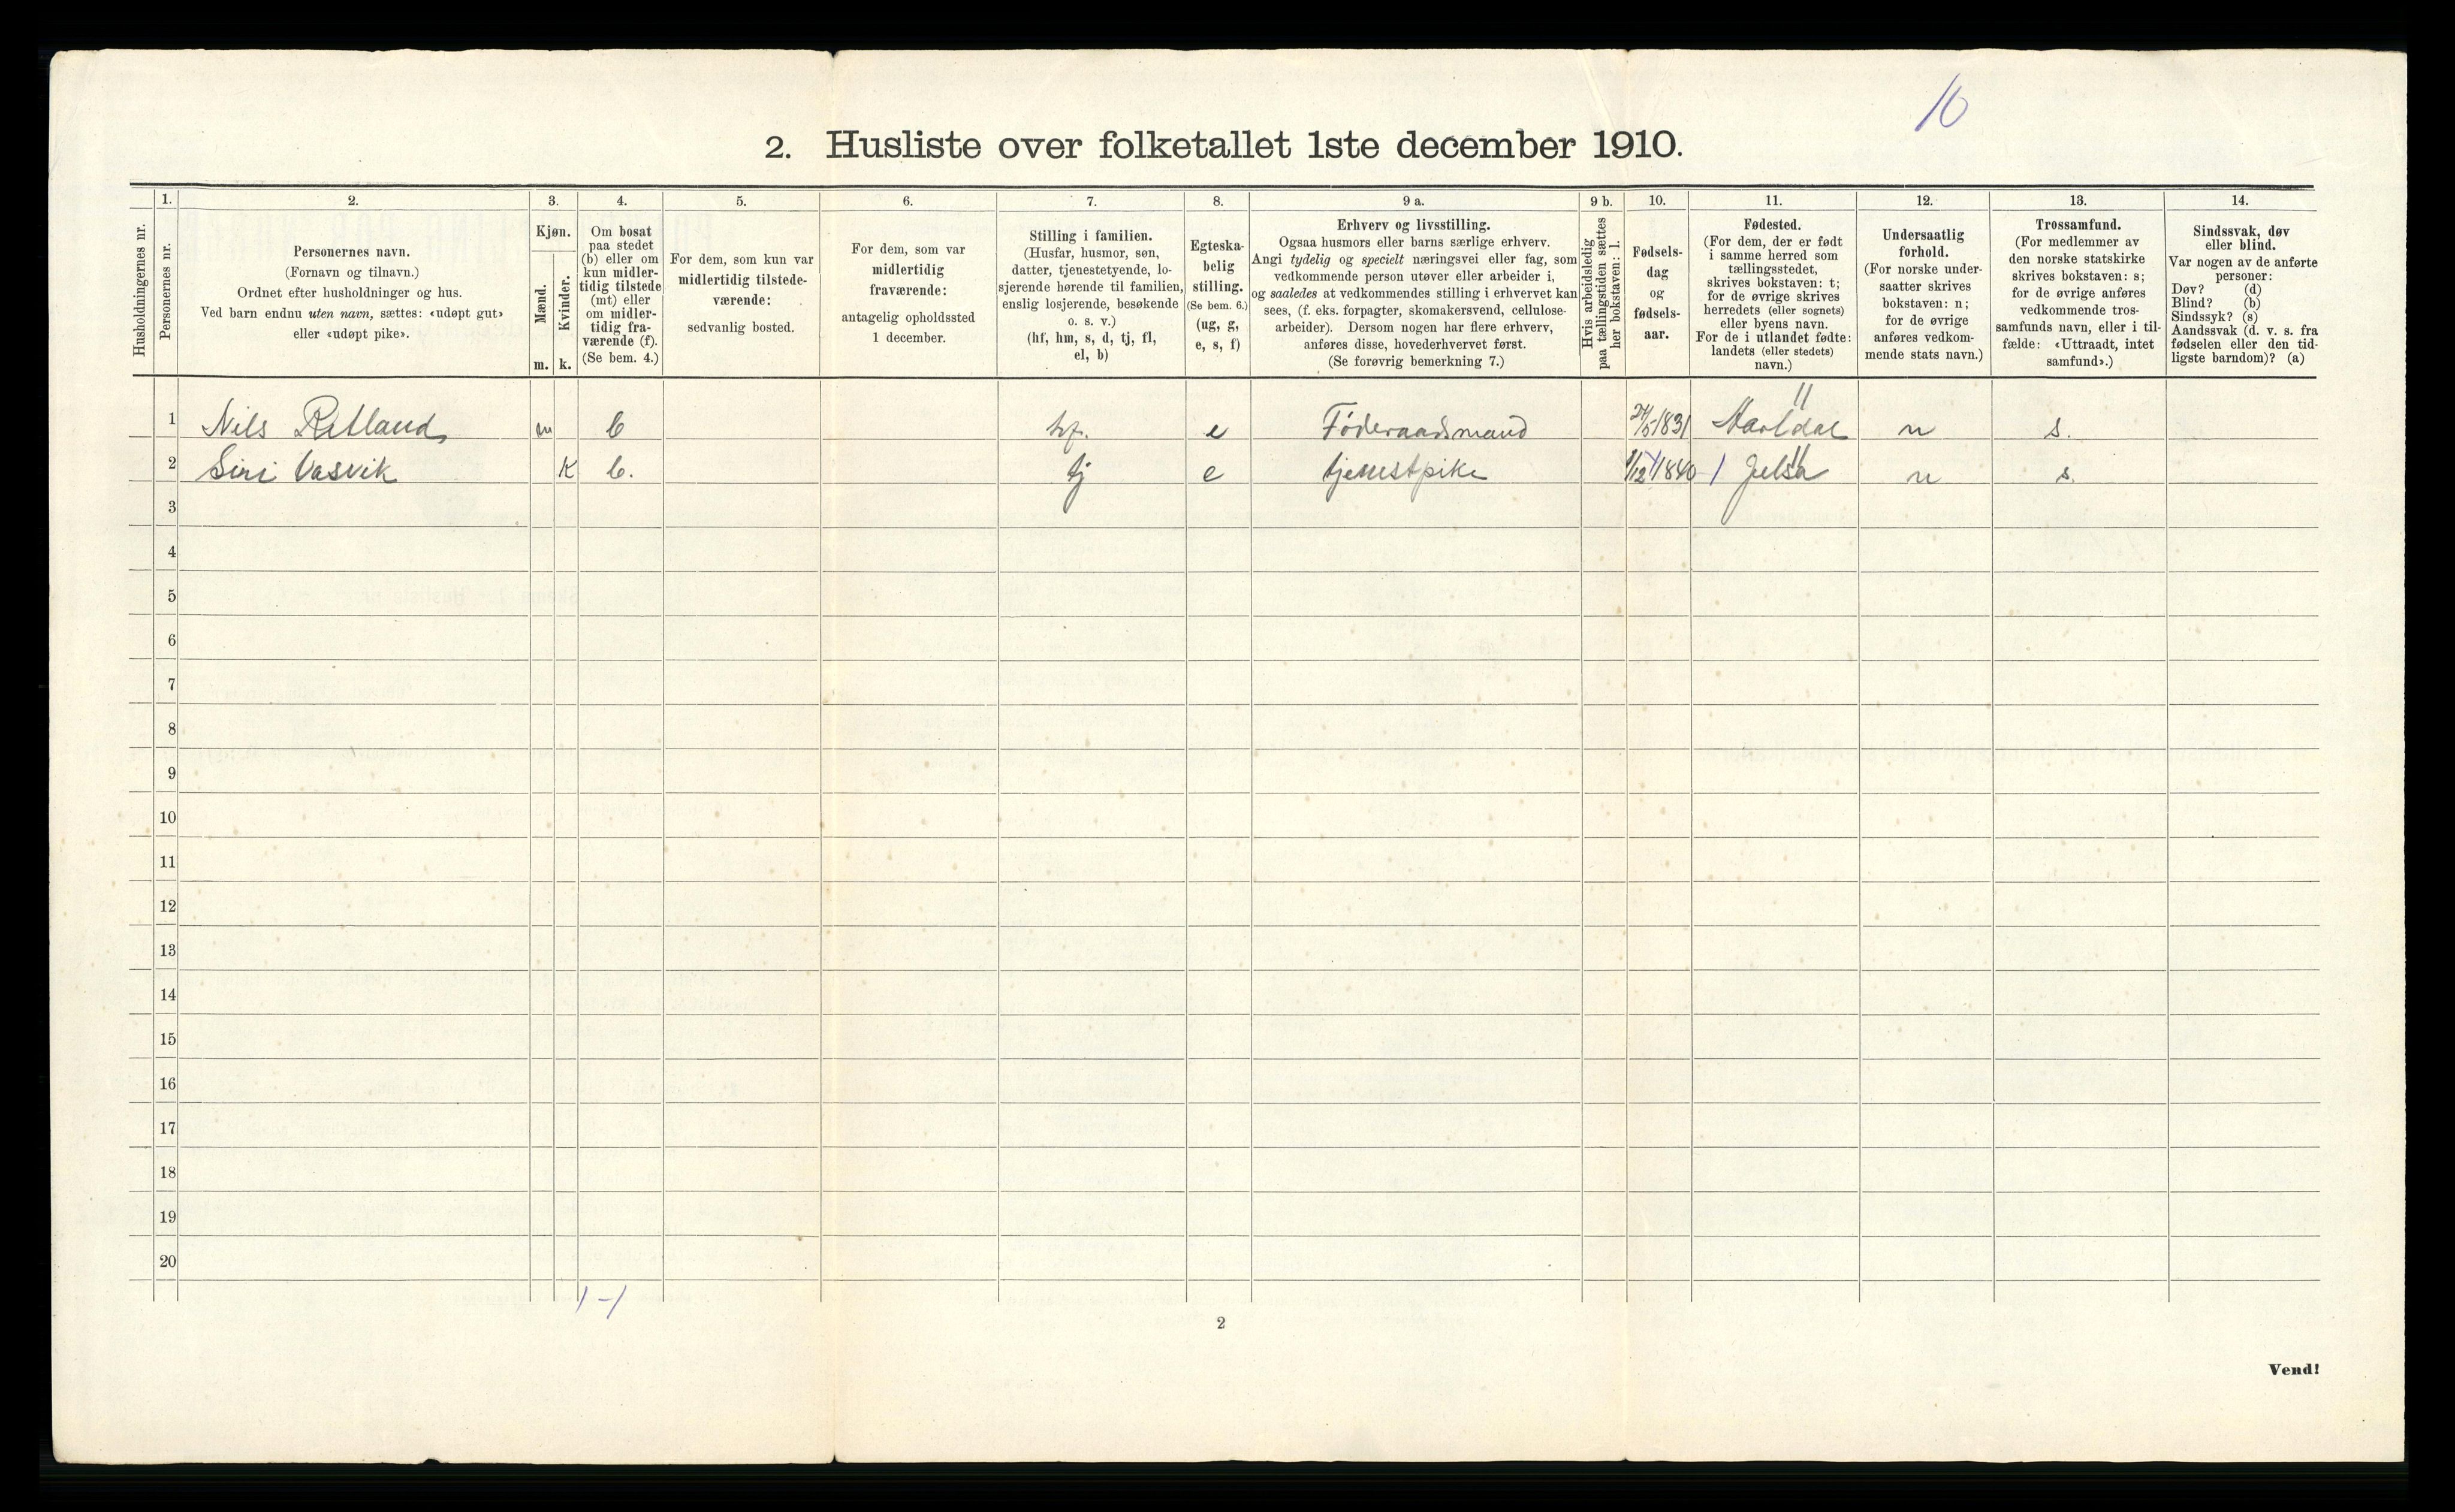 10
2. Husliste over folketallet 1ste december 1910.
Husholdningernes nr.
1.
Personernes nr.
2.
Personernes navn.
(Fornavn og tilnavn.)
Ordnet efter husholdninger og hus.
Ved barn endnu uten navn, sættes: «udøpt gut»
eller «udøpt pike».
3.
Kjøn.
Mænd.
m.
Kvinder.
k.
4.
Om bosat
paa stedet
(b) eller om
kun midler-
tidig tilstede
(mt) eller
om midler-
tidig fra-
værende (f).
(Se bem. 4.)
5.
For dem, som kun var
midlertidig tilstede-
værende:
sedvanlig bosted.
6.
For dem, som var
midlertidig
fraværende:
antagelig opholdssted
1 december.
7.
Stilling i familien.
(Husfar, husmor, søn,
datter, tjenestetyende, lo-
sjerende hørende til familien,
enslig losjerende, besøkende
o. s. v.)
(hf, hm, s, d, tj, fl,
el, b)
8.
Egteska-
belig
stilling.
(Se bem. 6.)
(ug, g,
e, s, f)
9 a.
Erhverv og livsstilling.
Ogsaa husmors eller barns særlige erhverv.
Angi tydelig og specielt næringsvei eller fag, som
vedkommende person utøver eller arbeider i,
og saaledes at vedkommendes stilling i erhvervet kan
sees, (f. eks. forpagter, skomakersvend, cellulose-
arbeider). Dersom nogen har flere erhverv,
anføres disse, hovederhvervet først.
(Se forøvrig bemerkning 7.)
9 b.
Hvis arbeidsledig
paa tællingstiden sættes
her bokstaven: l.
10.
Fødsels-
dag
og
fødsels-
aar.
11.
Fødested.
(For dem, der er født
i samme herred som
tællingsstedet,
skrives bokstaven: t;
for de øvrige skrives
herredets (eller sognets)
eller byens navn.
For de i utlandet fødte:
landets (eller stedets)
navn.)
12.
Undersaatlig
forhold.
(For norske under-
saatter skrives
bokstaven: n;
for de øvrige
anføres vedkom-
mende stats navn.)
13.
Trossamfund.
(For medlemmer av
den norske statskirke
skrives bokstaven: s;
for de øvrige anføres
vedkommende tros-
samfunds navn, eller i til-
fælde: «Uttraadt, intet
samfund».)
14.
Sindssvak, døv
eller blind.
Var nogen av de anførte
personer:
Døv? (d)
Blind? (b)
Sindssyk? (s)
Aandssvak (d. v. s. fra
fødselen eller den tid-
ligste barndom)? (a)
1 Nils Retland m b hf. e Føderaadsmand 1831 n s.
2 Siri Vasvik K b. tj e tjenestpike 1840 Jelsa n s.
3
4
5
6
7
8
9
10
11
12
13
14
15
16
17
18
19
20
1-1
2
Vend!